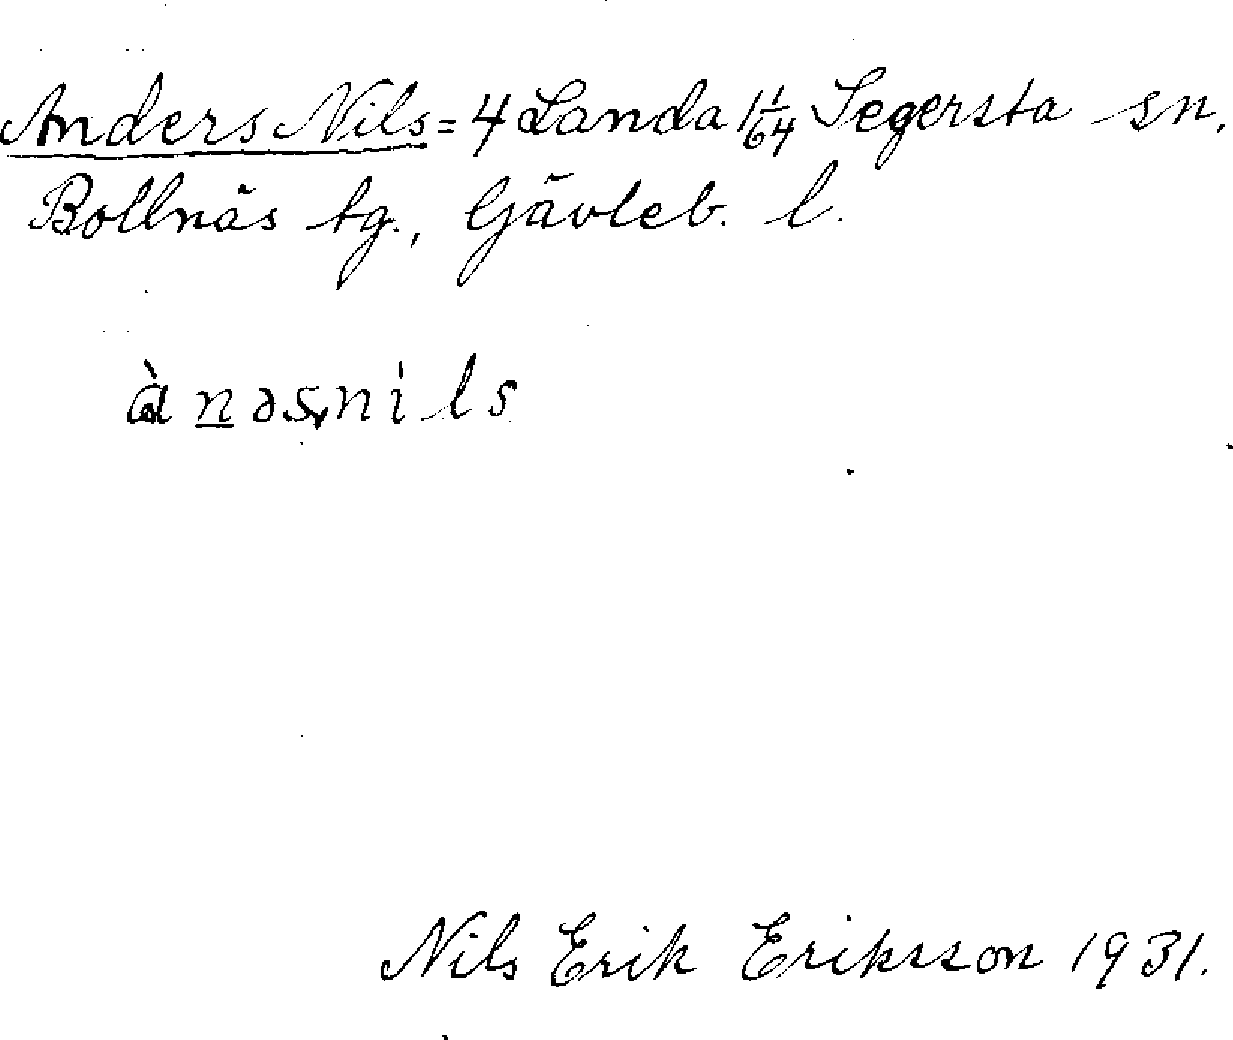 Anders Nils = 4 Landa 1 1/64 Segersta sn,
Bollnäs tg., Gävleb. l.
ànəs,nils
Nils Erik Eriksson 1931.